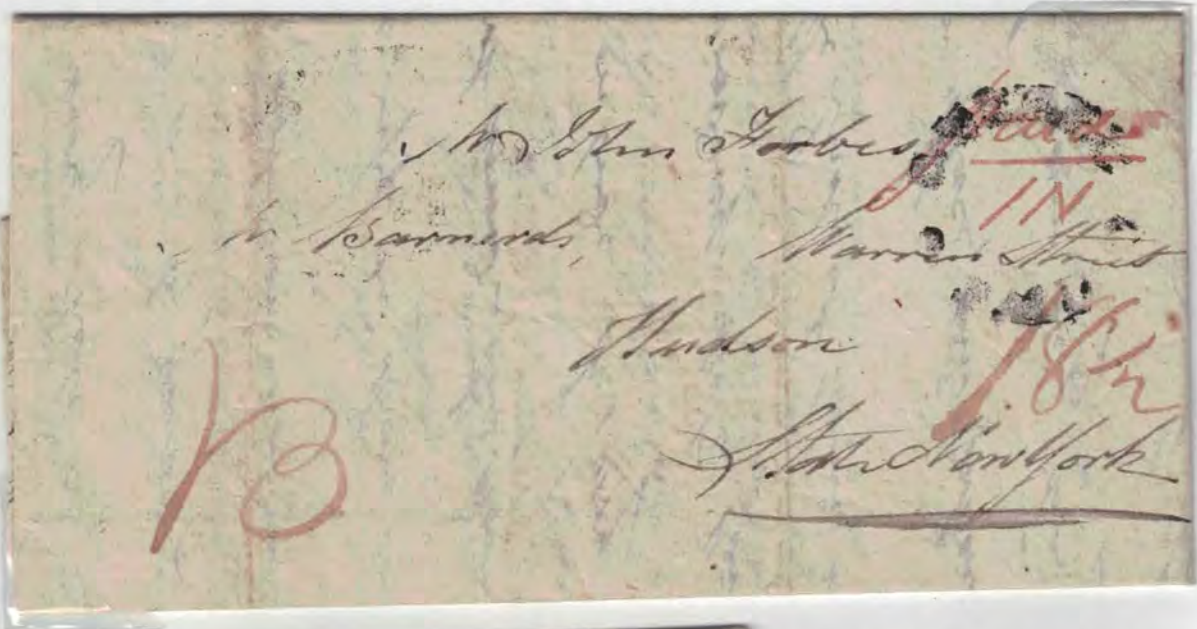 Mr John Forbes
Paid
1N
Mr Barnerds, Warren Street
Hudson
18½
State New York